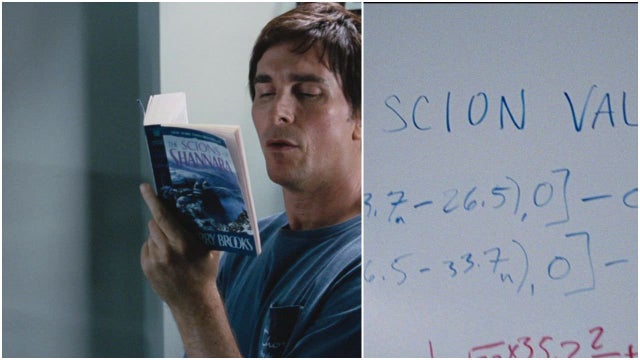 THE SCIONS OF
SHANNARA
RY BROOKS
SCION VAL
3.7n - 26.5), 0] -
6.5 - 33.7n), 0] -